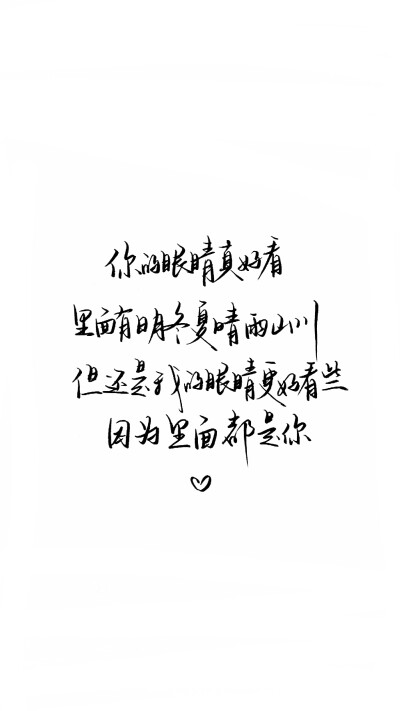 你的眼睛真好看
里面有日月冬夏晴雨山川
但还是我的眼睛更好看些
因为里面都是你
♡